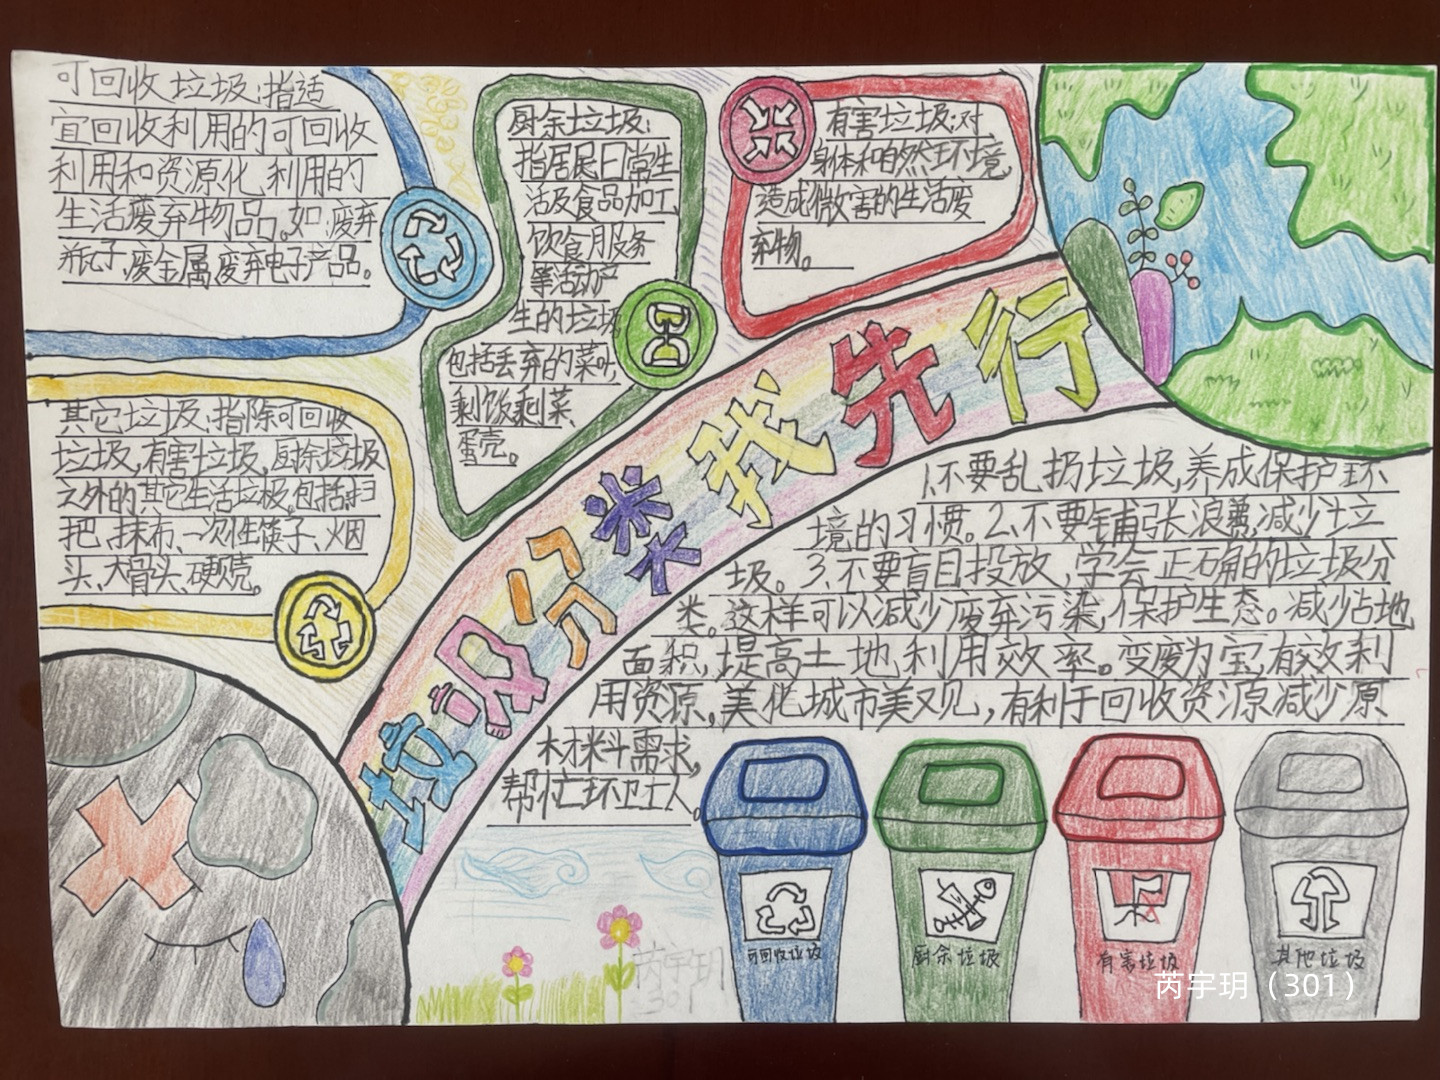 可回收垃圾:指适
宜回收利用的可回收
利用和资源化、利用的
生活废弃物品。如:废弃
瓶子,废金属,废弃电子产品。
厨余垃圾:
指居民日常生
活及食品加工
饮食服务
等活动产
生的垃圾
包括丢弃的菜叶,
剩饭剩菜、
蛋壳。
有害垃圾:对
身体和自然环境
造成微害的生活废
弃物。
其它垃圾:指除可回收
垃圾,有害垃圾,厨余垃圾
之外的其它生活垃圾,包括:扫
把、抹布、一次性筷子、烟
头、大骨头、硬壳。
垃圾分类我先行
1.不要乱扔垃圾,养成保护环
境的习惯。2.不要铺张浪费,减少垃
圾。3.不要盲目投放,学会正确的垃圾分
类。这样可以减少废弃污染,保护生态。减少占地
面积,提高土地利用效率。变废为宝,有效利
用资源。美化城市美观,有利于回收资源减少原
材料需求,
帮忙环卫工人。
可回收垃圾
厨余垃圾
有害垃圾
其他垃圾
芮宇玥
301
芮宇玥（301）